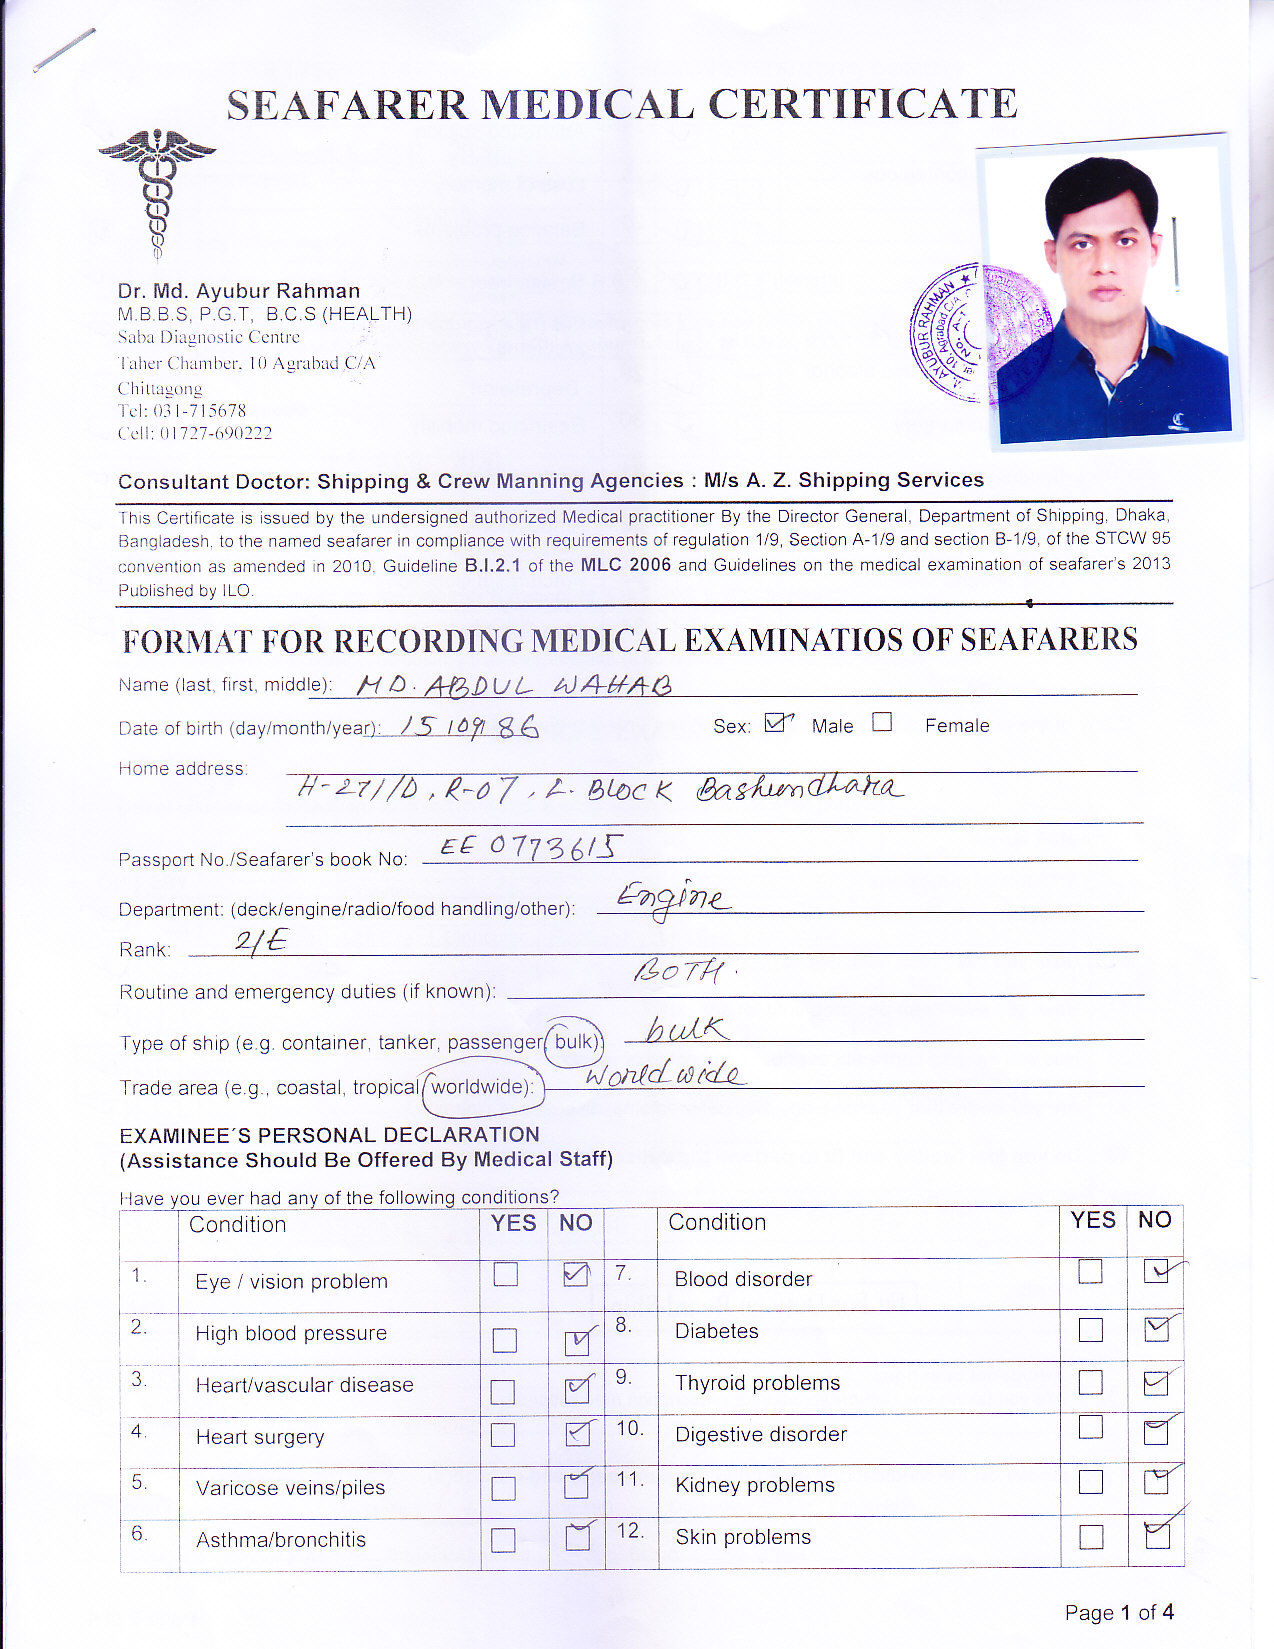 SEAFARER MEDICAL CERTIFICATE
Dr. Md. Ayubur Rahman
M.B.B.S, P.G.T, B.C.S (HEALTH)
Saba Diagnostic Centre
Taher Chamber, 10 Agrabad C/A
Chittagong
Tel: 031-715678
Cell: 01727-690222
AYUBUR RAHMAN ★
10, Agrabad C/A
Consultant Doctor: Shipping & Crew Manning Agencies : M/s A. Z. Shipping Services
This Certificate is issued by the undersigned authorized Medical practitioner By the Director General, Department of Shipping, Dhaka,
Bangladesh, to the named seafarer in compliance with requirements of regulation 1/9, Section A-1/9 and section B-1/9, of the STCW 95
convention as amended in 2010, Guideline B.I.2.1 of the MLC 2006 and Guidelines on the medical examination of seafarer's 2013
Published by ILO.
FORMAT FOR RECORDING MEDICAL EXAMINATIOS OF SEAFARERS
Name (last, first, middle): MD. ABDUL WAHAB
Date of birth (day/month/year): 15/09/86 Sex: Male Female
Home address:
H-271/D, R-07, L. BLOCK Bashundhara
Passport No./Seafarer's book No: EE 0773615
Department: (deck/engine/radio/food handling/other): Engine
Rank: 2/E
Routine and emergency duties (if known): BOTH.
Type of ship (e.g. container, tanker, passenger, bulk) bulk
Trade area (e.g., coastal, tropical, worldwide): Worldwide
EXAMINEE´S PERSONAL DECLARATION
(Assistance Should Be Offered By Medical Staff)
Have you ever had any of the following conditions?
Condition YES NO Condition YES NO
1. Eye / vision problem 7. Blood disorder
2. High blood pressure 8. Diabetes
3. Heart/vascular disease 9. Thyroid problems
4. Heart surgery 10. Digestive disorder
5. Varicose veins/piles 11. Kidney problems
6. Asthma/bronchitis 12. Skin problems
Page 1 of 4